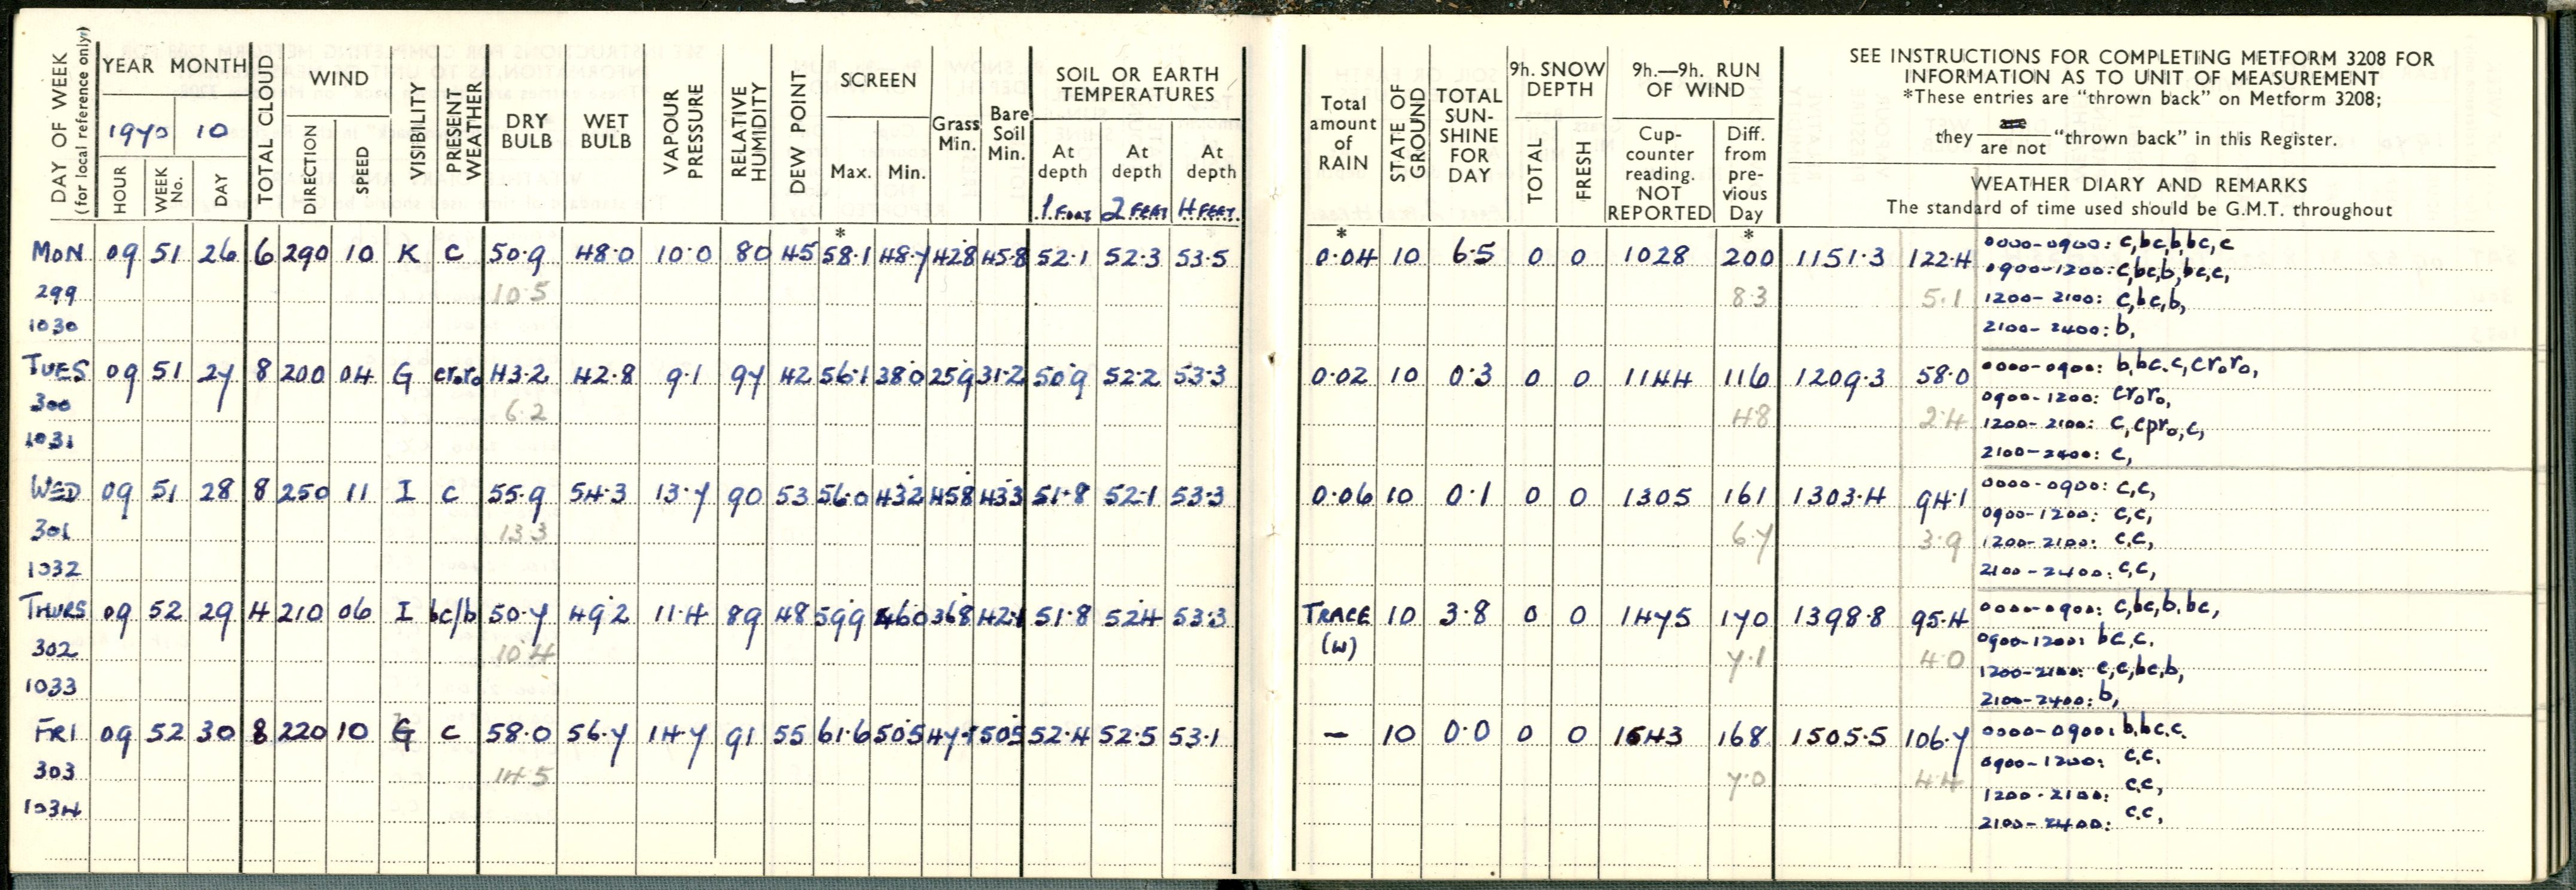 DAY OF WEEK (for local reference only)
YEAR MONTH
1970 10
HOUR
WEEK No.
DAY
TOTAL CLOUD
WIND
DIRECTION
SPEED
VISIBILITY
PRESENT WEATHER
DRY BULB
WET BULB
VAPOUR PRESSURE
RELATIVE HUMIDITY
DEW POINT
SCREEN
Max.
Min.
Grass Min.
Bare Soil Min.
SOIL OR EARTH TEMPERATURES
At depth 1 FOOT
At depth 2 FEET
At depth 4 FEET.
Total amount of RAIN
STATE OF GROUND
TOTAL SUN-SHINE FOR DAY
9h. SNOW DEPTH
TOTAL
FRESH
9h.—9h. RUN OF WIND
Cup-counter reading. NOT REPORTED
Diff. from pre-vious Day
SEE INSTRUCTIONS FOR COMPLETING METFORM 3208 FOR
INFORMATION AS TO UNIT OF MEASUREMENT
*These entries are "thrown back" on Metform 3208;
they are not "thrown back" in this Register.
WEATHER DIARY AND REMARKS
The standard of time used should be G.M.T. throughout
* * *
MON 09 51 26 6 290 10 K C 50.9 48.0 10.0 80 45 58.1 48.7 42.8 45.8 52.1 52.3 53.5 0.04 10 6.5 0 0 1028 200 1151.3 122.4 0000-0900: c,bc,b,bc,c
0900-1200: c,bc,b,bc,c,
299 10.5 8.3 5.1 1200-2100: c,bc,b,
1030 2100-2400: b,
TUES 09 51 27 8 200 04 G cr₀r₀ 43.2 42.8 9.1 97 42 56.1 38.0 25.9 31.2 50.9 52.2 53.3 0.02 10 0.3 0 0 1144 116 1209.3 58.0 0000-0900: b,bc.c,cr₀r₀,
300 6.2 4.8 2.4 0900-1200: cr₀r₀,
1200-2100: c,cpr₀,c,
1031 2100-2400: c,
WED 09 51 28 8 250 11 I C 55.9 54.3 13.7 90 53 56.0 43.2 45.8 43.3 51.8 52.1 53.3 0.06 10 0.1 0 0 1305 161 1303.4 94.1 0000-0900: c,c,
0900-1200: c,c,
301 13.3 6.7 3.9 1200-2100: c,c,
1032 2100-2400: c,c,
THURS 09 52 29 4 210 06 I bc/b 50.7 49.2 11.4 89 48 59.9 46.0 36.8 42.1 51.8 52.4 53.3 TRACE 10 3.8 0 0 1475 170 1398.8 95.4 0000-0900: c,bc,b,bc,
(W) 0900-1200: bc,c.
302 10.4 7.1 4.0 1200-2100: c,c,bc,b,
1033 2100-2400: b,
FRI 09 52 30 8 220 10 G C 58.0 56.7 14.7 91 55 61.6 50.5 50.5 52.4 52.5 53.1 — 10 0.0 0 0 1643 168 1505.5 106.7 0000-0900: b,bc.c.
303 14.5 7.0 4.4 0900-1200: c,c.
1200-2100: c,c,
1034 2100-2400: c,c,